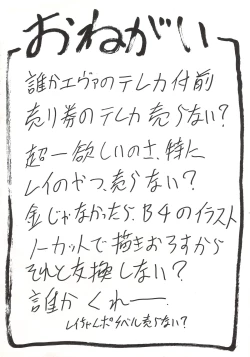 おねがい
誰かエヴァのテレカ付前
売り券のテレカ売らない?
超一欲しいのさ、特に
レイのやつ、売らない?
金じゃなかったら、B4のイラスト
一カットで描きおろすから
それと交換しない?
誰かくれー
レイちゃんポ ベル売らない?